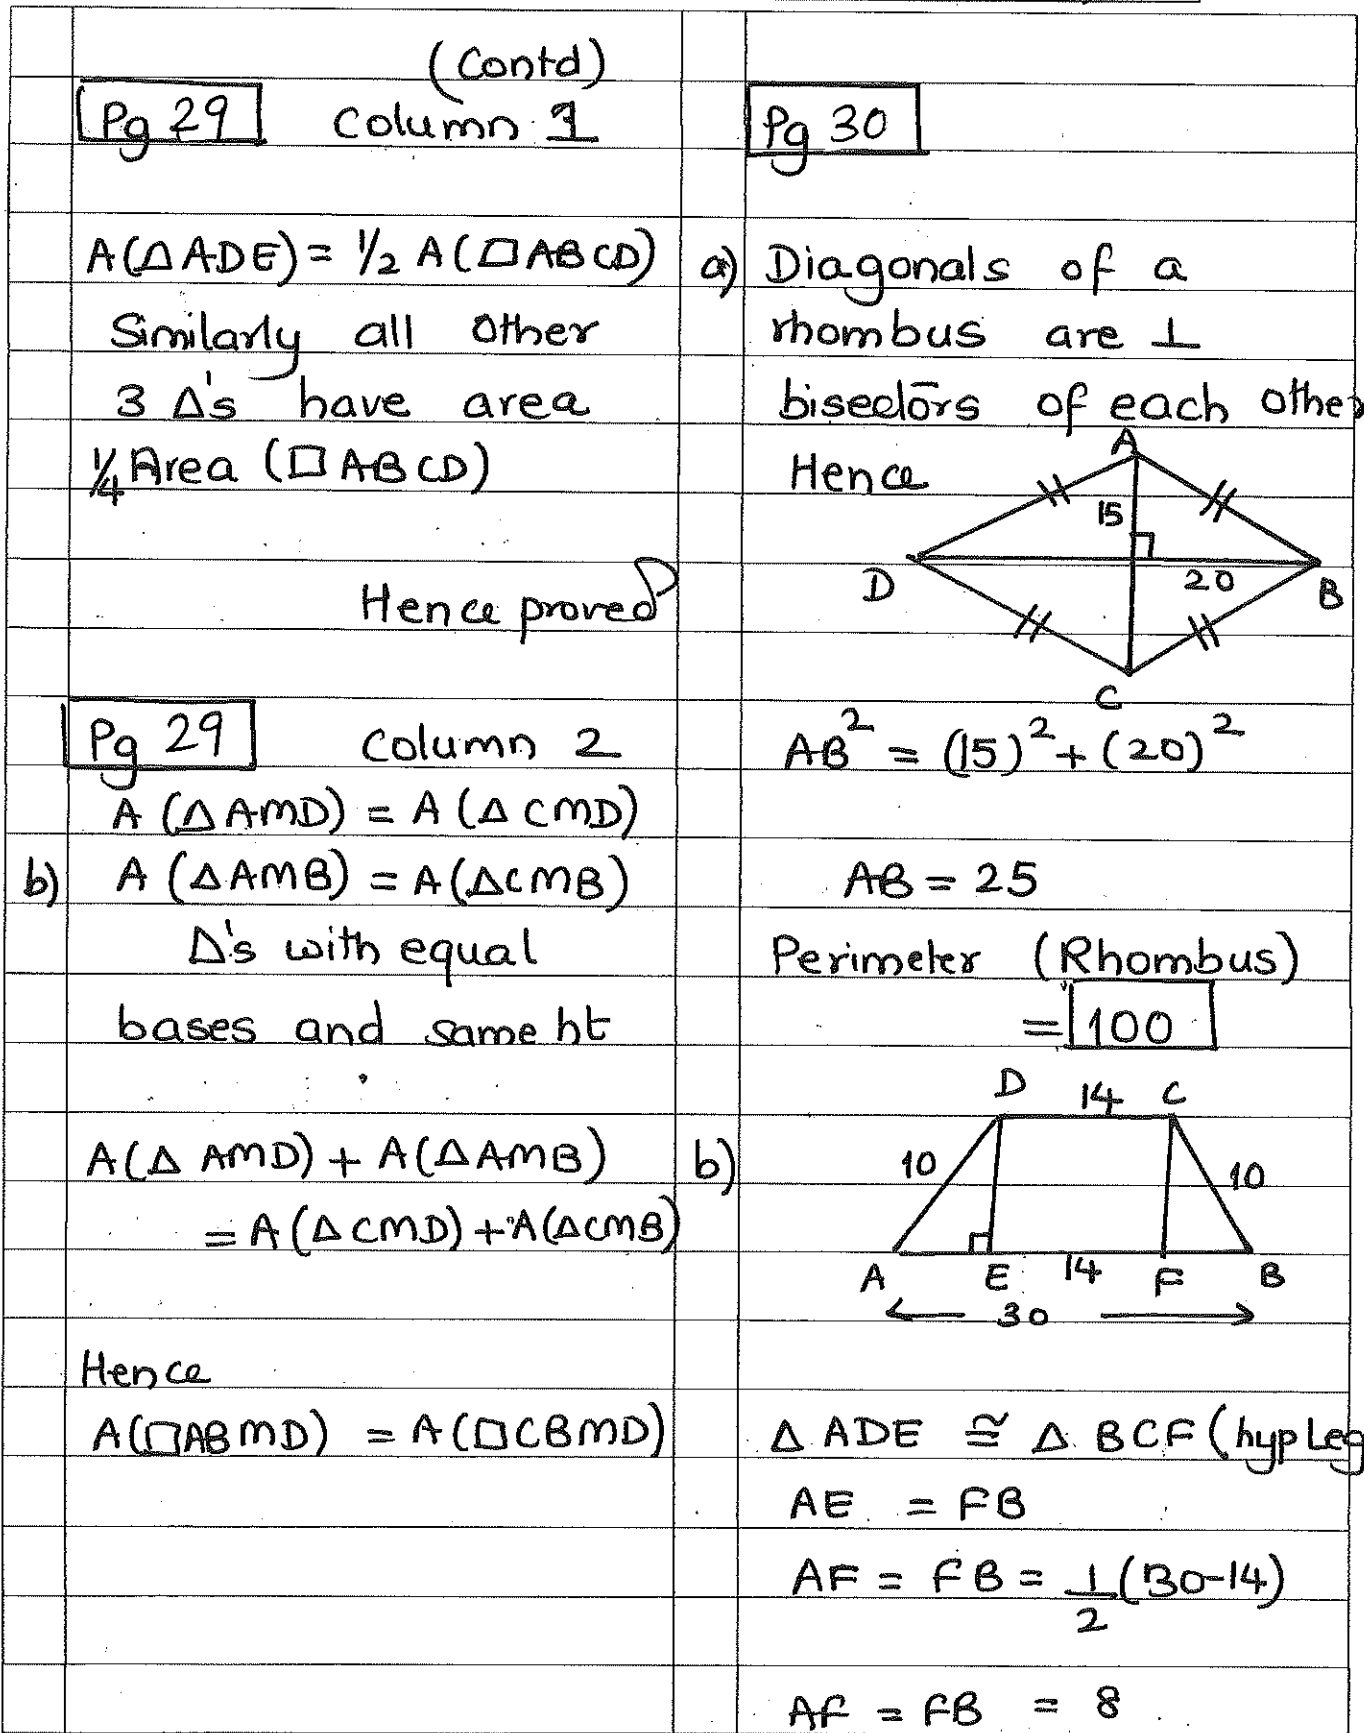 (Contd)
Pg 29 Column 1
A(△ADE) = 1/2 A(□ABCD)
Similarly all other
3 Δ's have area
1/4 Area (□ABCD)
Hence proved
Pg 29 Column 2
A (△AMD) = A (△CMD)
b) A (△AMB) = A(△CMB)
Δ's with equal
bases and same ht
A(△AMD) + A(△AMB)
= A(△CMD) + A(△CMB)
Hence
A(□ABMD) = A(□CBMD)
Pg 30
a) Diagonals of a
rhombus are ⊥
bisectors of each other
Hence
A
15
D 20 B
C
AB² = (15)² + (20)²
AB = 25
Perimeter (Rhombus)
= 100
D 14 C
b) 10 10
A E 14 F B
← 30 →
△ADE ≅ △BCF (hyp Leg
AE = FB
AF = FB = 1/2 (30-14)
AF = FB = 8